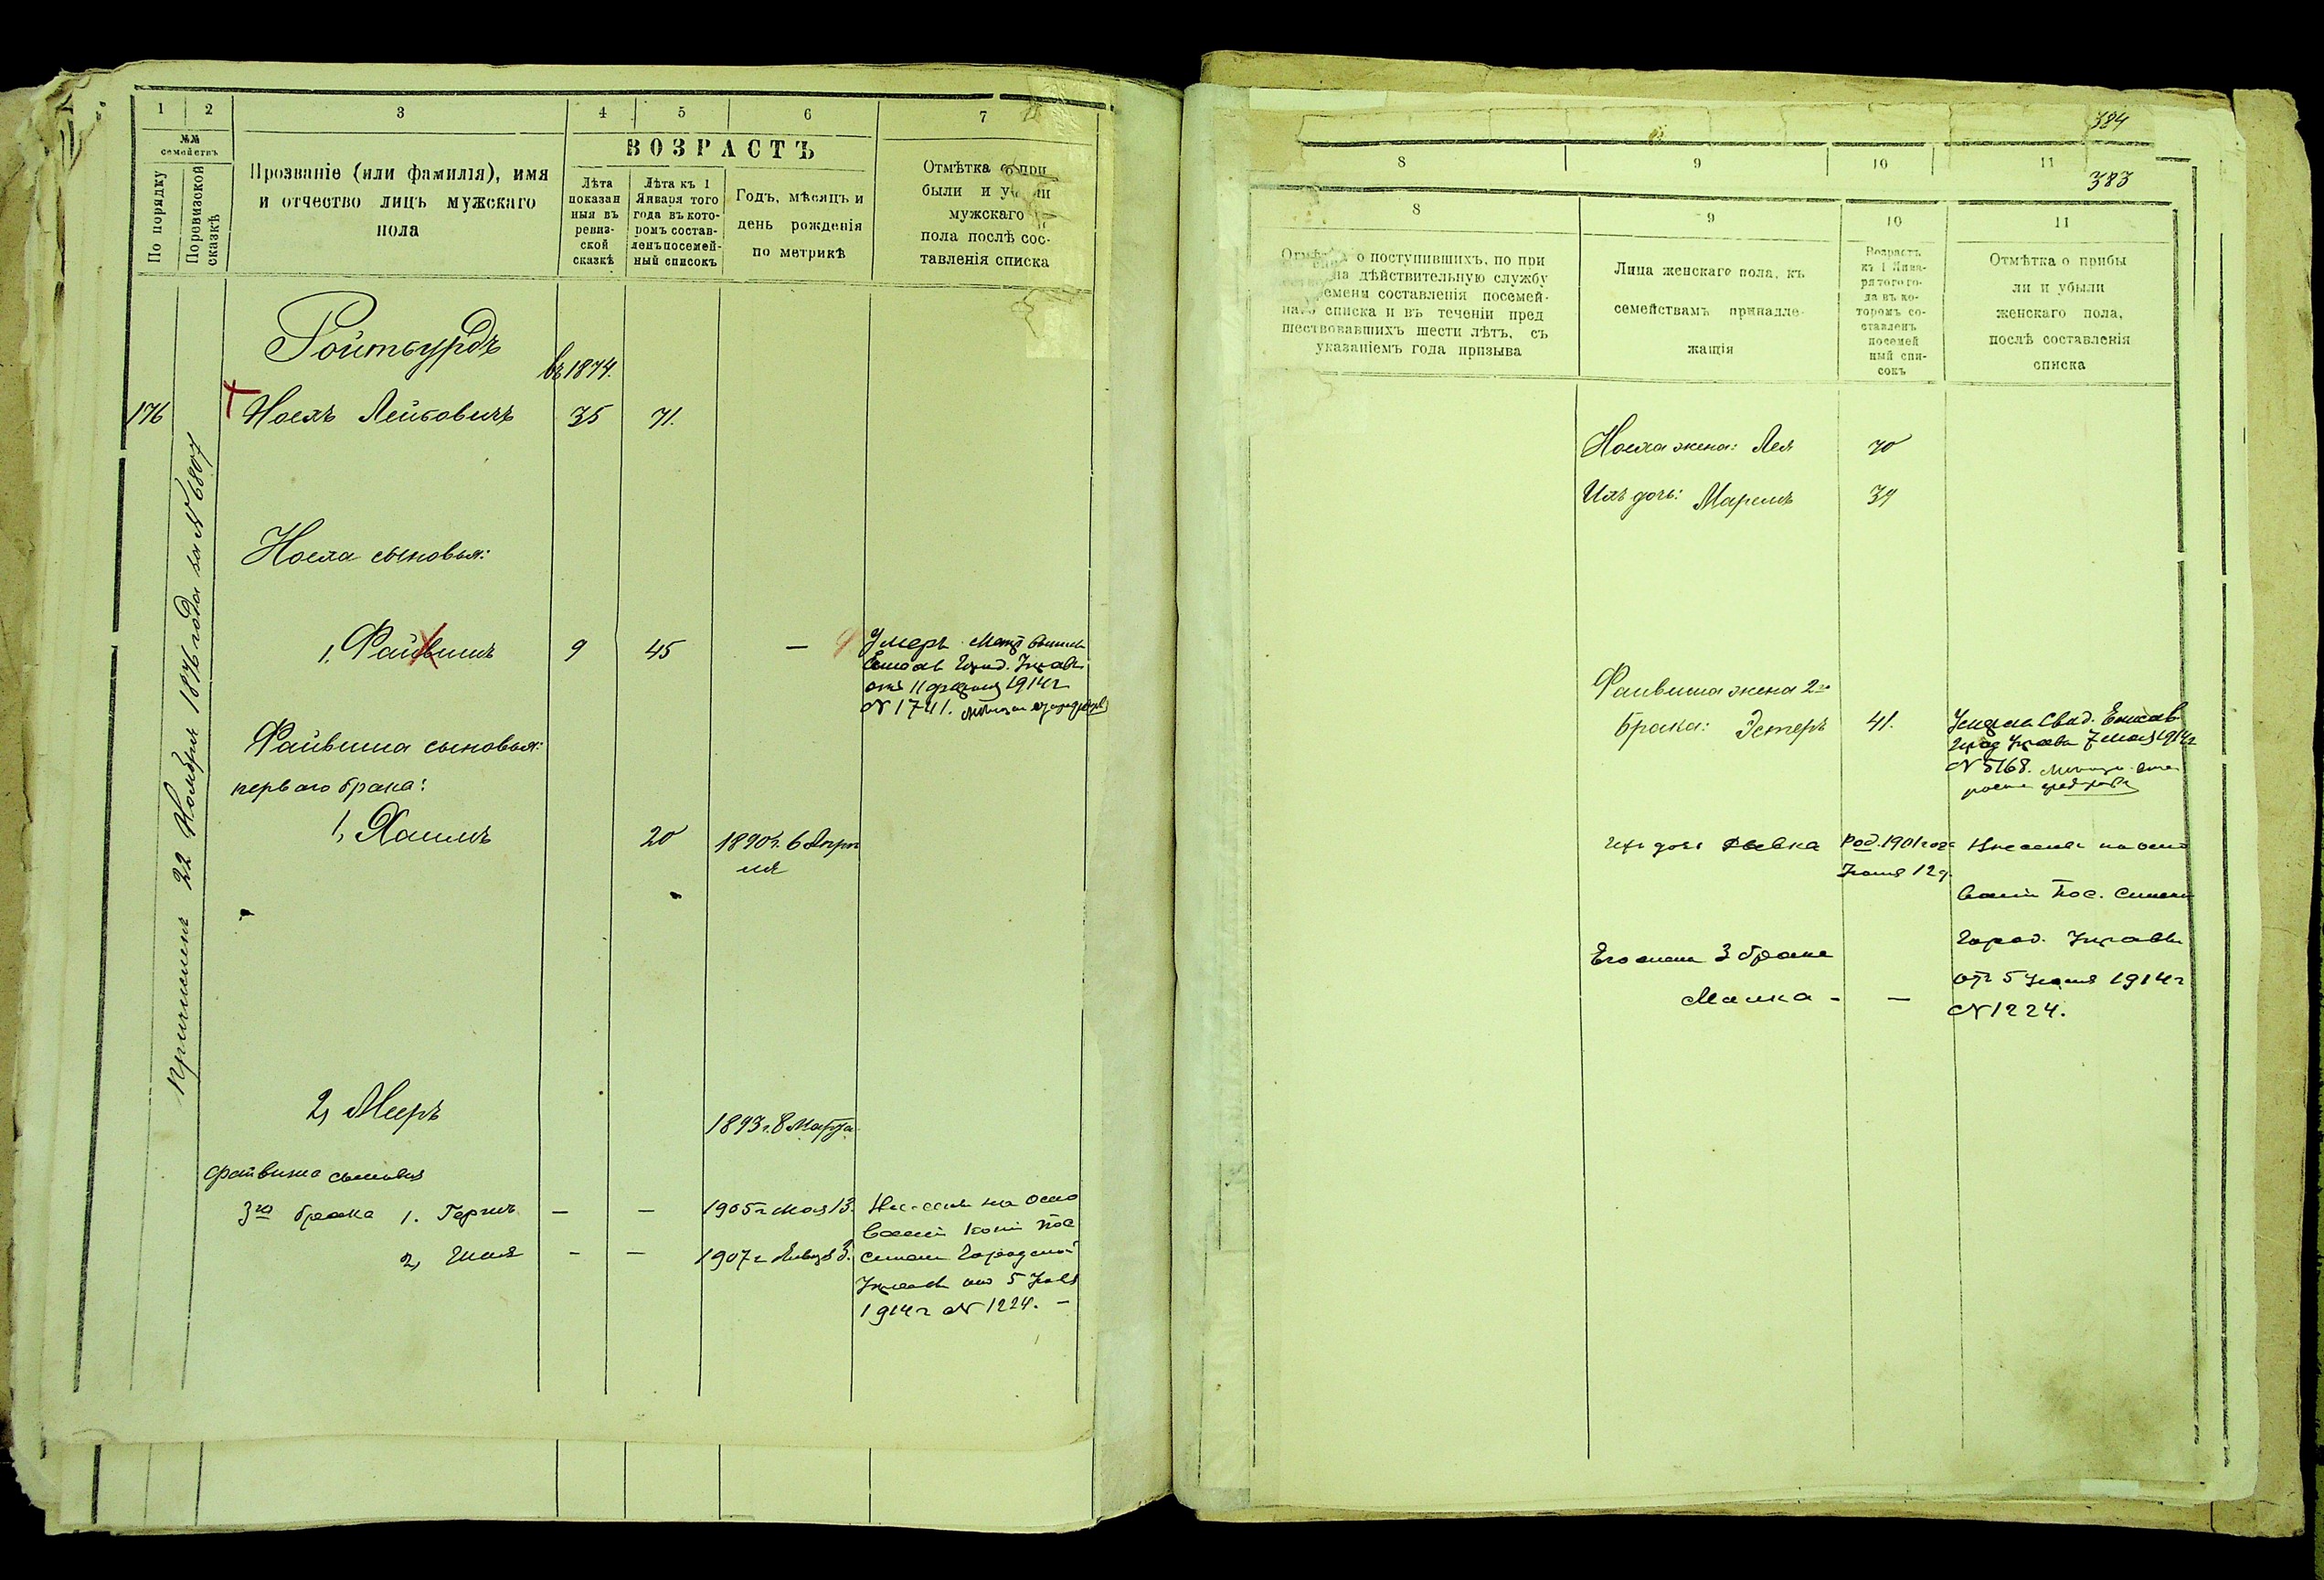 1 2 3 4 5 6 7
№№ семействъ
По порядку
По ревизской сказкѣ
Прозваніе (или фамилія), имя
и отчество лицъ мужскаго
пола
ВОЗРАСТЪ
Лѣта
показан
ныя въ
ревиз-
ской
сказкѣ
Лѣта къ 1
Января того
года въ кото-
ромъ состав-
ленъ посемей-
ный списокъ
Годъ, мѣсяцъ и
день рожденія
по метрикѣ
Отмѣтка о при
были и убыли
мужскаго
пола послѣ сос-
тавленія списка
Ройтбурдъ
въ 1874.
176 Носяхъ Лейбовичъ 35 71.
Причисленъ 22 Ноября 1876 года за № 6807
Носяа сыновья:
1, Файвишъ 9 45 —
Умеръ
Град. Управы
1914 г
№ 1741.
Файвиша сыновья:
перваго брака:
1, Хаимъ 20 1890 г. 6 Апрѣ
ля
2, Мееръ 1893 г. 8 Марта
Файвиша сыновья
3го брака 1. Гершъ — — 1905 г Мая 13.
2, Шая — — 1907 г
Внесены на осно
ваніи копіи пос
списка Городской
Управы отъ 5
1914 г № 1224. —
384
8 9 10 11
383
8 9 10 11
Отмѣтка о поступившихъ, по при
на дѣйствительную службу
времени составленія посемей-
наго списка и въ теченіи пред
шествовавшихъ шести лѣтъ, съ
указаніемъ года призыва
Лица женскаго пола, къ
семействамъ принадле-
жащія
Возрастъ
къ 1 Янва-
ря того го-
да въ ко-
торомъ со-
ставленъ
посемей
ный спи-
сокъ
Отмѣтка о прибы
ли и убыли
женскаго пола,
послѣ составленія
списка
Носяа жена: Лея 70
Ихъ дочь: Марьемъ 39
Файвиша жена 2го
брака: Эстеръ 41.
Свид. Елисав
Град Управы 7 Мая 1914 г
№ 5168.
Ихъ дочь Ривка Род. 1901 года
12 д.
Внесена на осно
ваніи пос. списка
Город. Управы
отъ 5 1914 г
№ 1224.
Его жена 3 брака
Малка - —